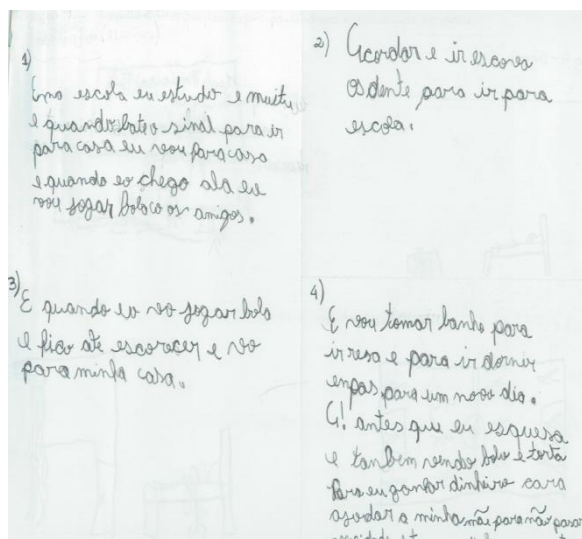 1)
E na escola eu estudo e muitu
e quando bate o sinal para ir
para casa eu vou para casa
e quando eu chego ala eu
vou jogar bola co os amigos.
2) Acordar e ir escova
os dente para ir para
escola.
3)
E quando eu vo jogar bola
e fico até escorecer e vo
para minha casa.
4)
E vou tomar banho para
ir resa e para ir dormir
enpas para um novo dia.
A! antes que eu esquesa
e tanbem vendo bolo e torta
Para eu ganhar dinhiro para
ajudar a minha mãe para não pasar